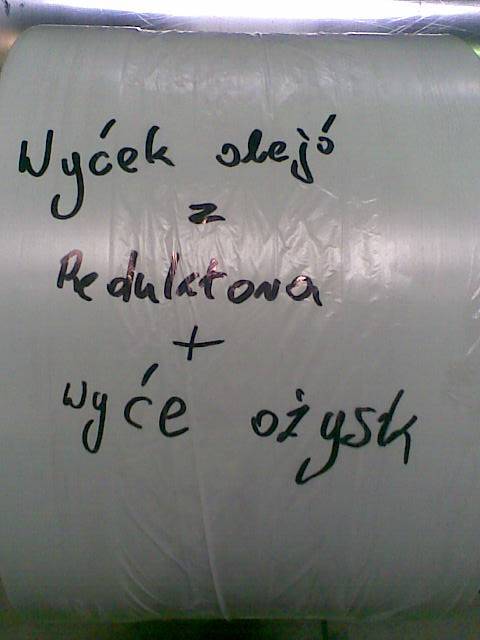 Wyćek olejó
z
Reduktora
+
wyće ożysk